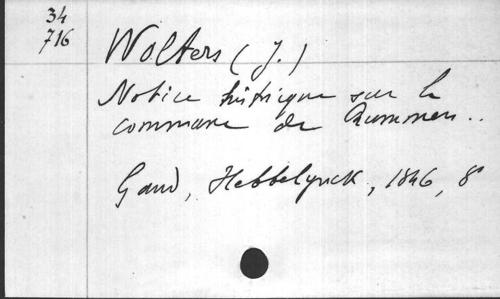 34
716
Wolters (J.)
Notice historique sur la
commune de Rummen..
Gand, Hebbelynck, 1846, 8°